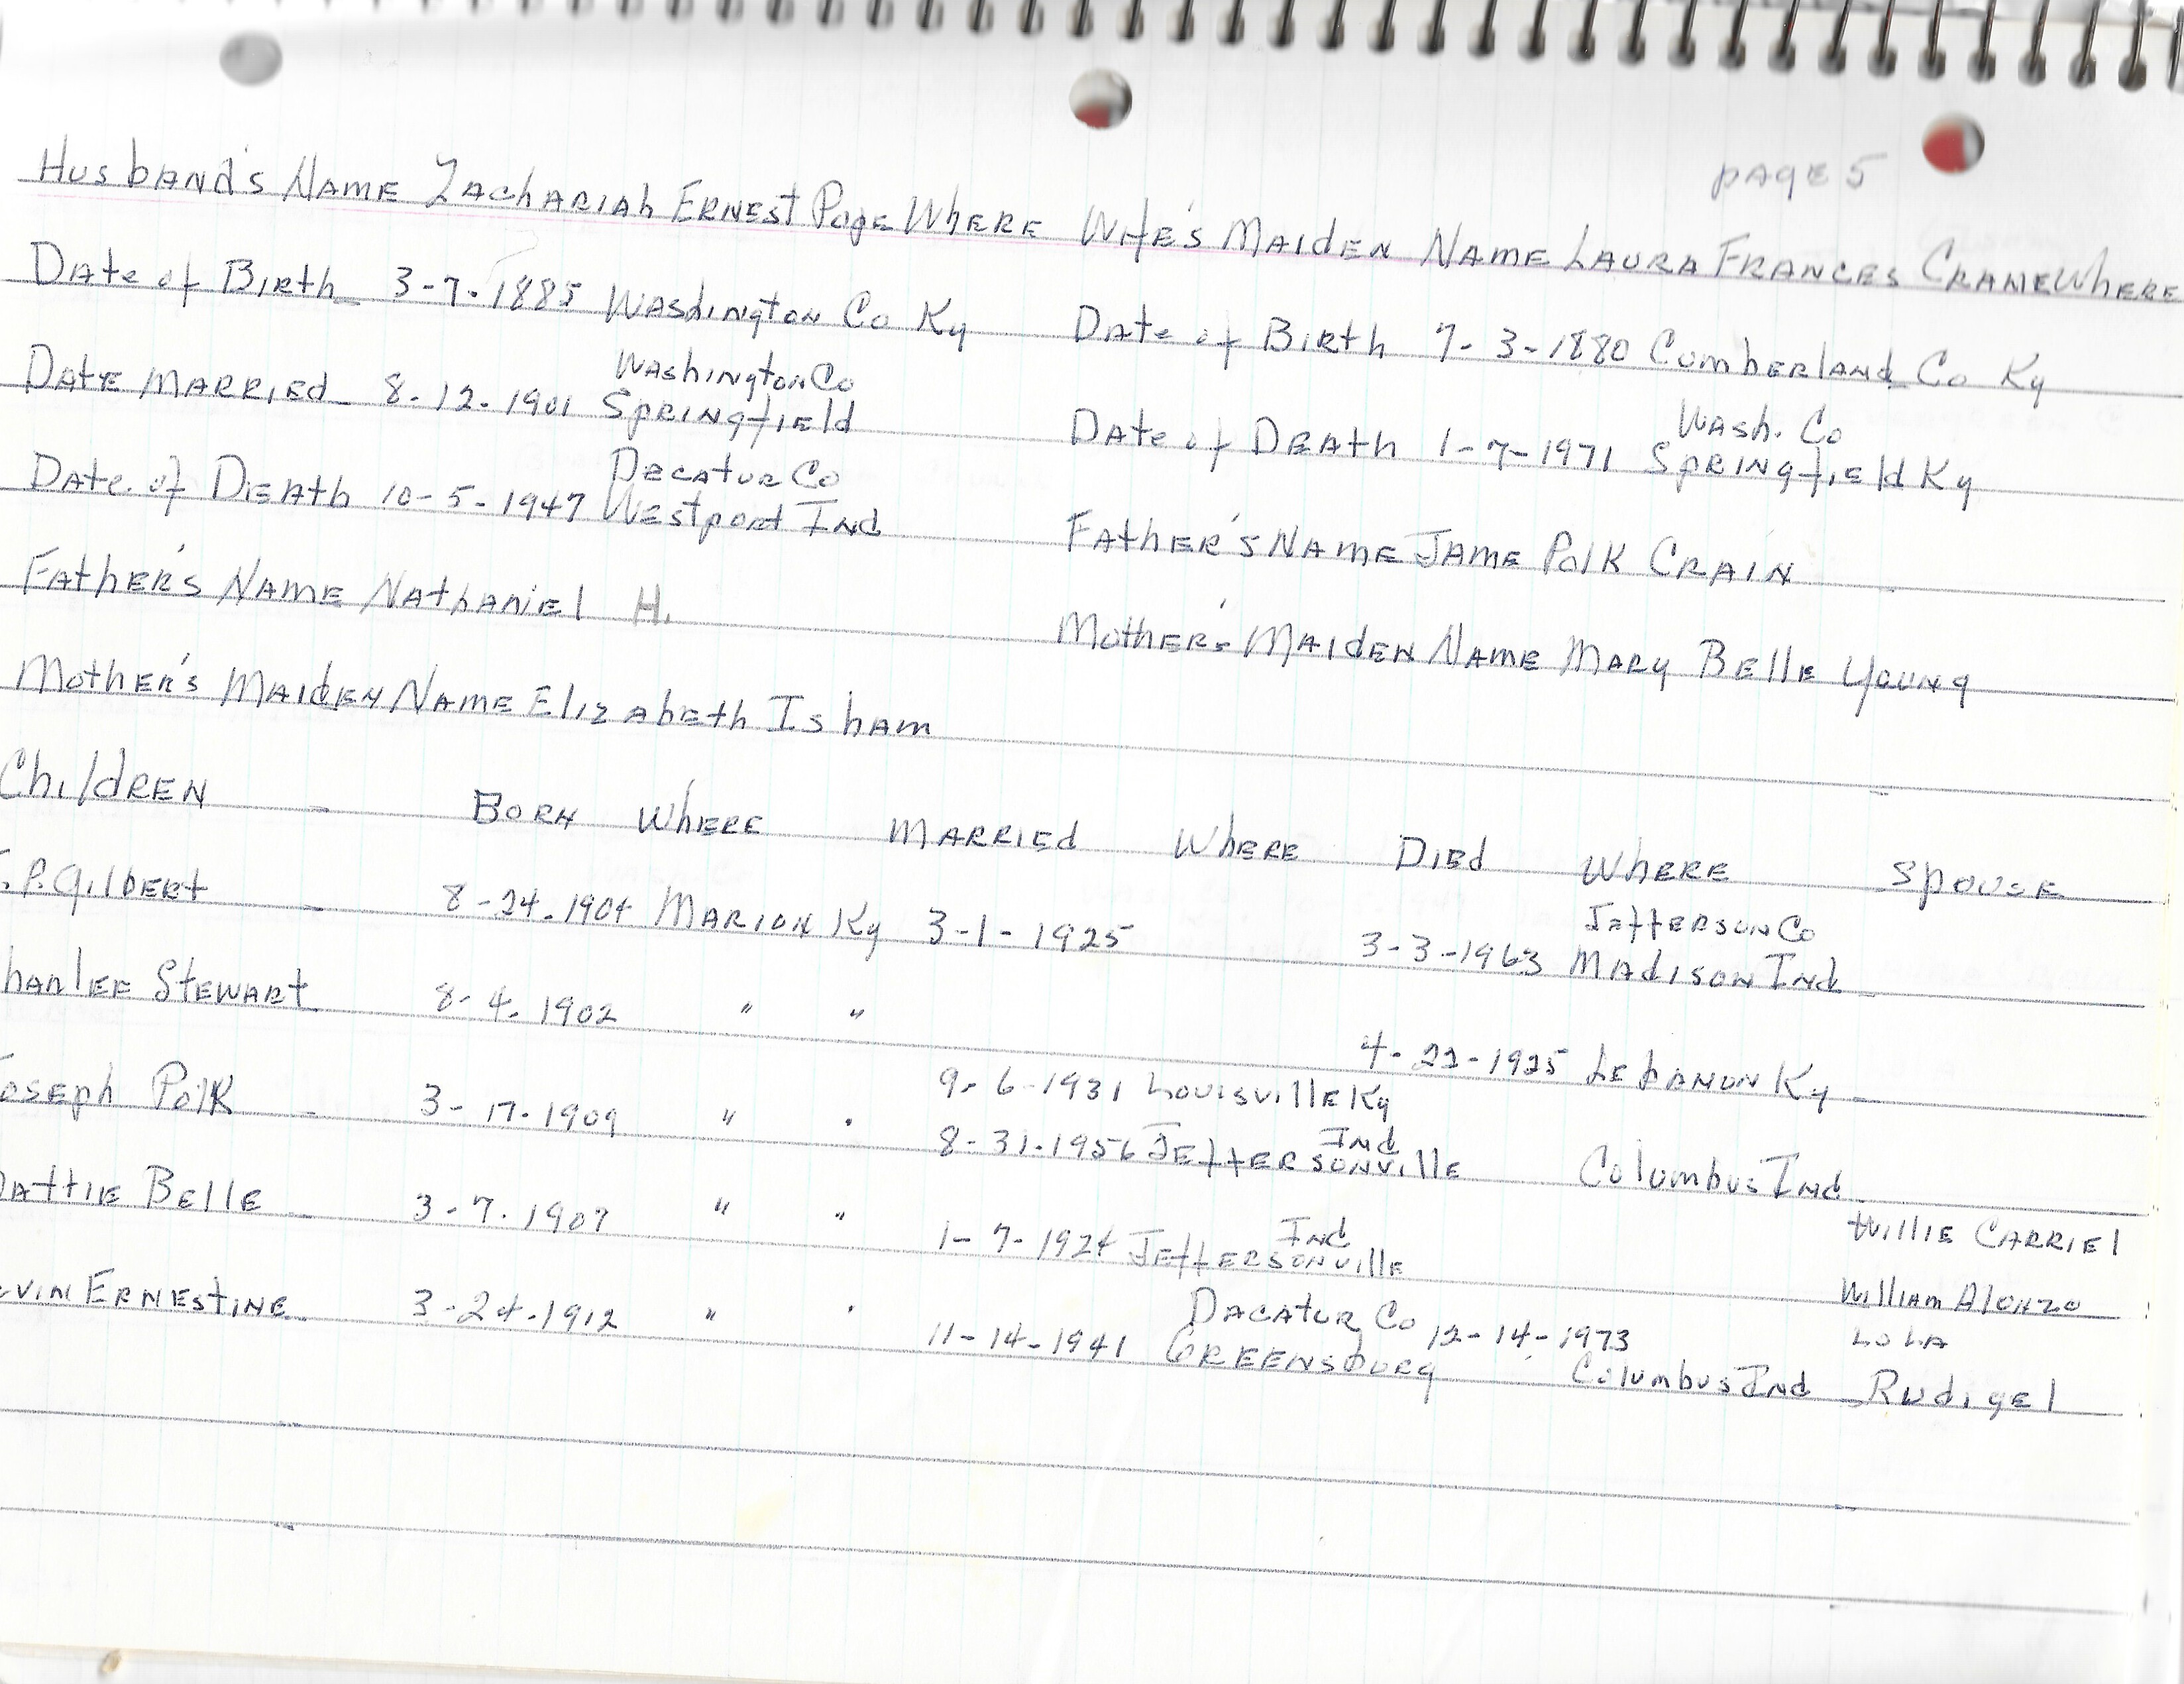 page 5
Husband's Name Zachariah Ernest Poge Where Wife's Maiden Name Laura Frances Crane Where
Date of Birth 3-7-1885 Washington Co Ky Date of Birth 7-3-1880 Cumberland Co Ky
Date Married 8-12-1901 Washington Co Springfield Date of Death 1-7-1971 Wash. Co Springfield Ky
Date of Death 10-5-1947 Decatur Co Westport Ind Father's Name Jame Polk Crain
Father's Name Nathaniel H. Mother's Maiden Name Mary Belle Young
Mother's Maiden Name Elizabeth Isham
Children Born Where Married Where Died Where Spouse
.P. Gilbert 8-24-1904 Marion Ky 3-1-1925 3-3-1963 Jefferson Co Madison Ind
harlee Stewart 8-4-1902 " " 4-22-1925 Lebanon Ky
oseph Polk 3-17-1909 " " 9-6-1931 Louisville Ky
8-31-1956 Jeffersonville Ind Columbus Ind
attie Belle 3-7-1907 " " 1-7-1924 Jeffersonville Ind Willie Carriel
vin Ernestine 3-24-1912 " " 11-14-1941 Dacatur Co Greensburg 12-14-1973 Columbus Ind William Alonzo
Lola
Rudigel